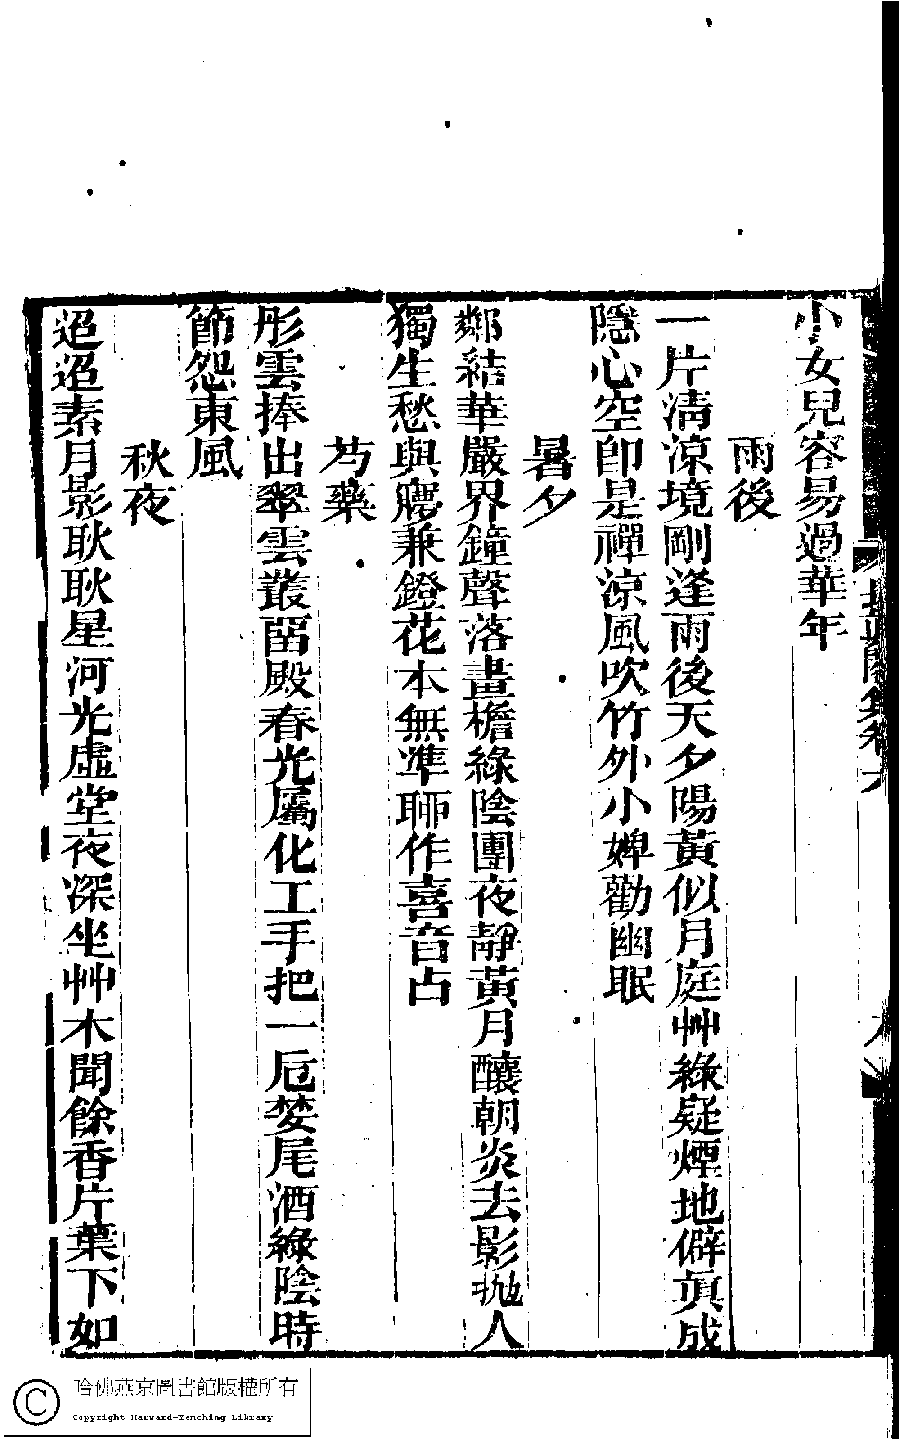 小女兒容易過華年
雨後
一片淸涼境剛逢雨後天夕陽黃似月庭艸綠疑煙地僻眞成
隱心空卽是禪涼風吹竹外小婢勸幽眠
暑夕
鄰結華嚴界鐘聲落畫檐綠陰團夜靜黃月釀朝炎去影拋人
獨生愁與寱兼鐙花本無準聊作喜音占
芍藥
彤雲捧出翠雲叢留殿春光屬化工手把一卮婪尾酒綠陰時
節怨東風
秋夜
迢迢素月影耿耿星河光虛堂夜深坐艸木聞餘香片葉下如
哈佛燕京圖書館版權所有
Copyright Harvard-Yenching Library